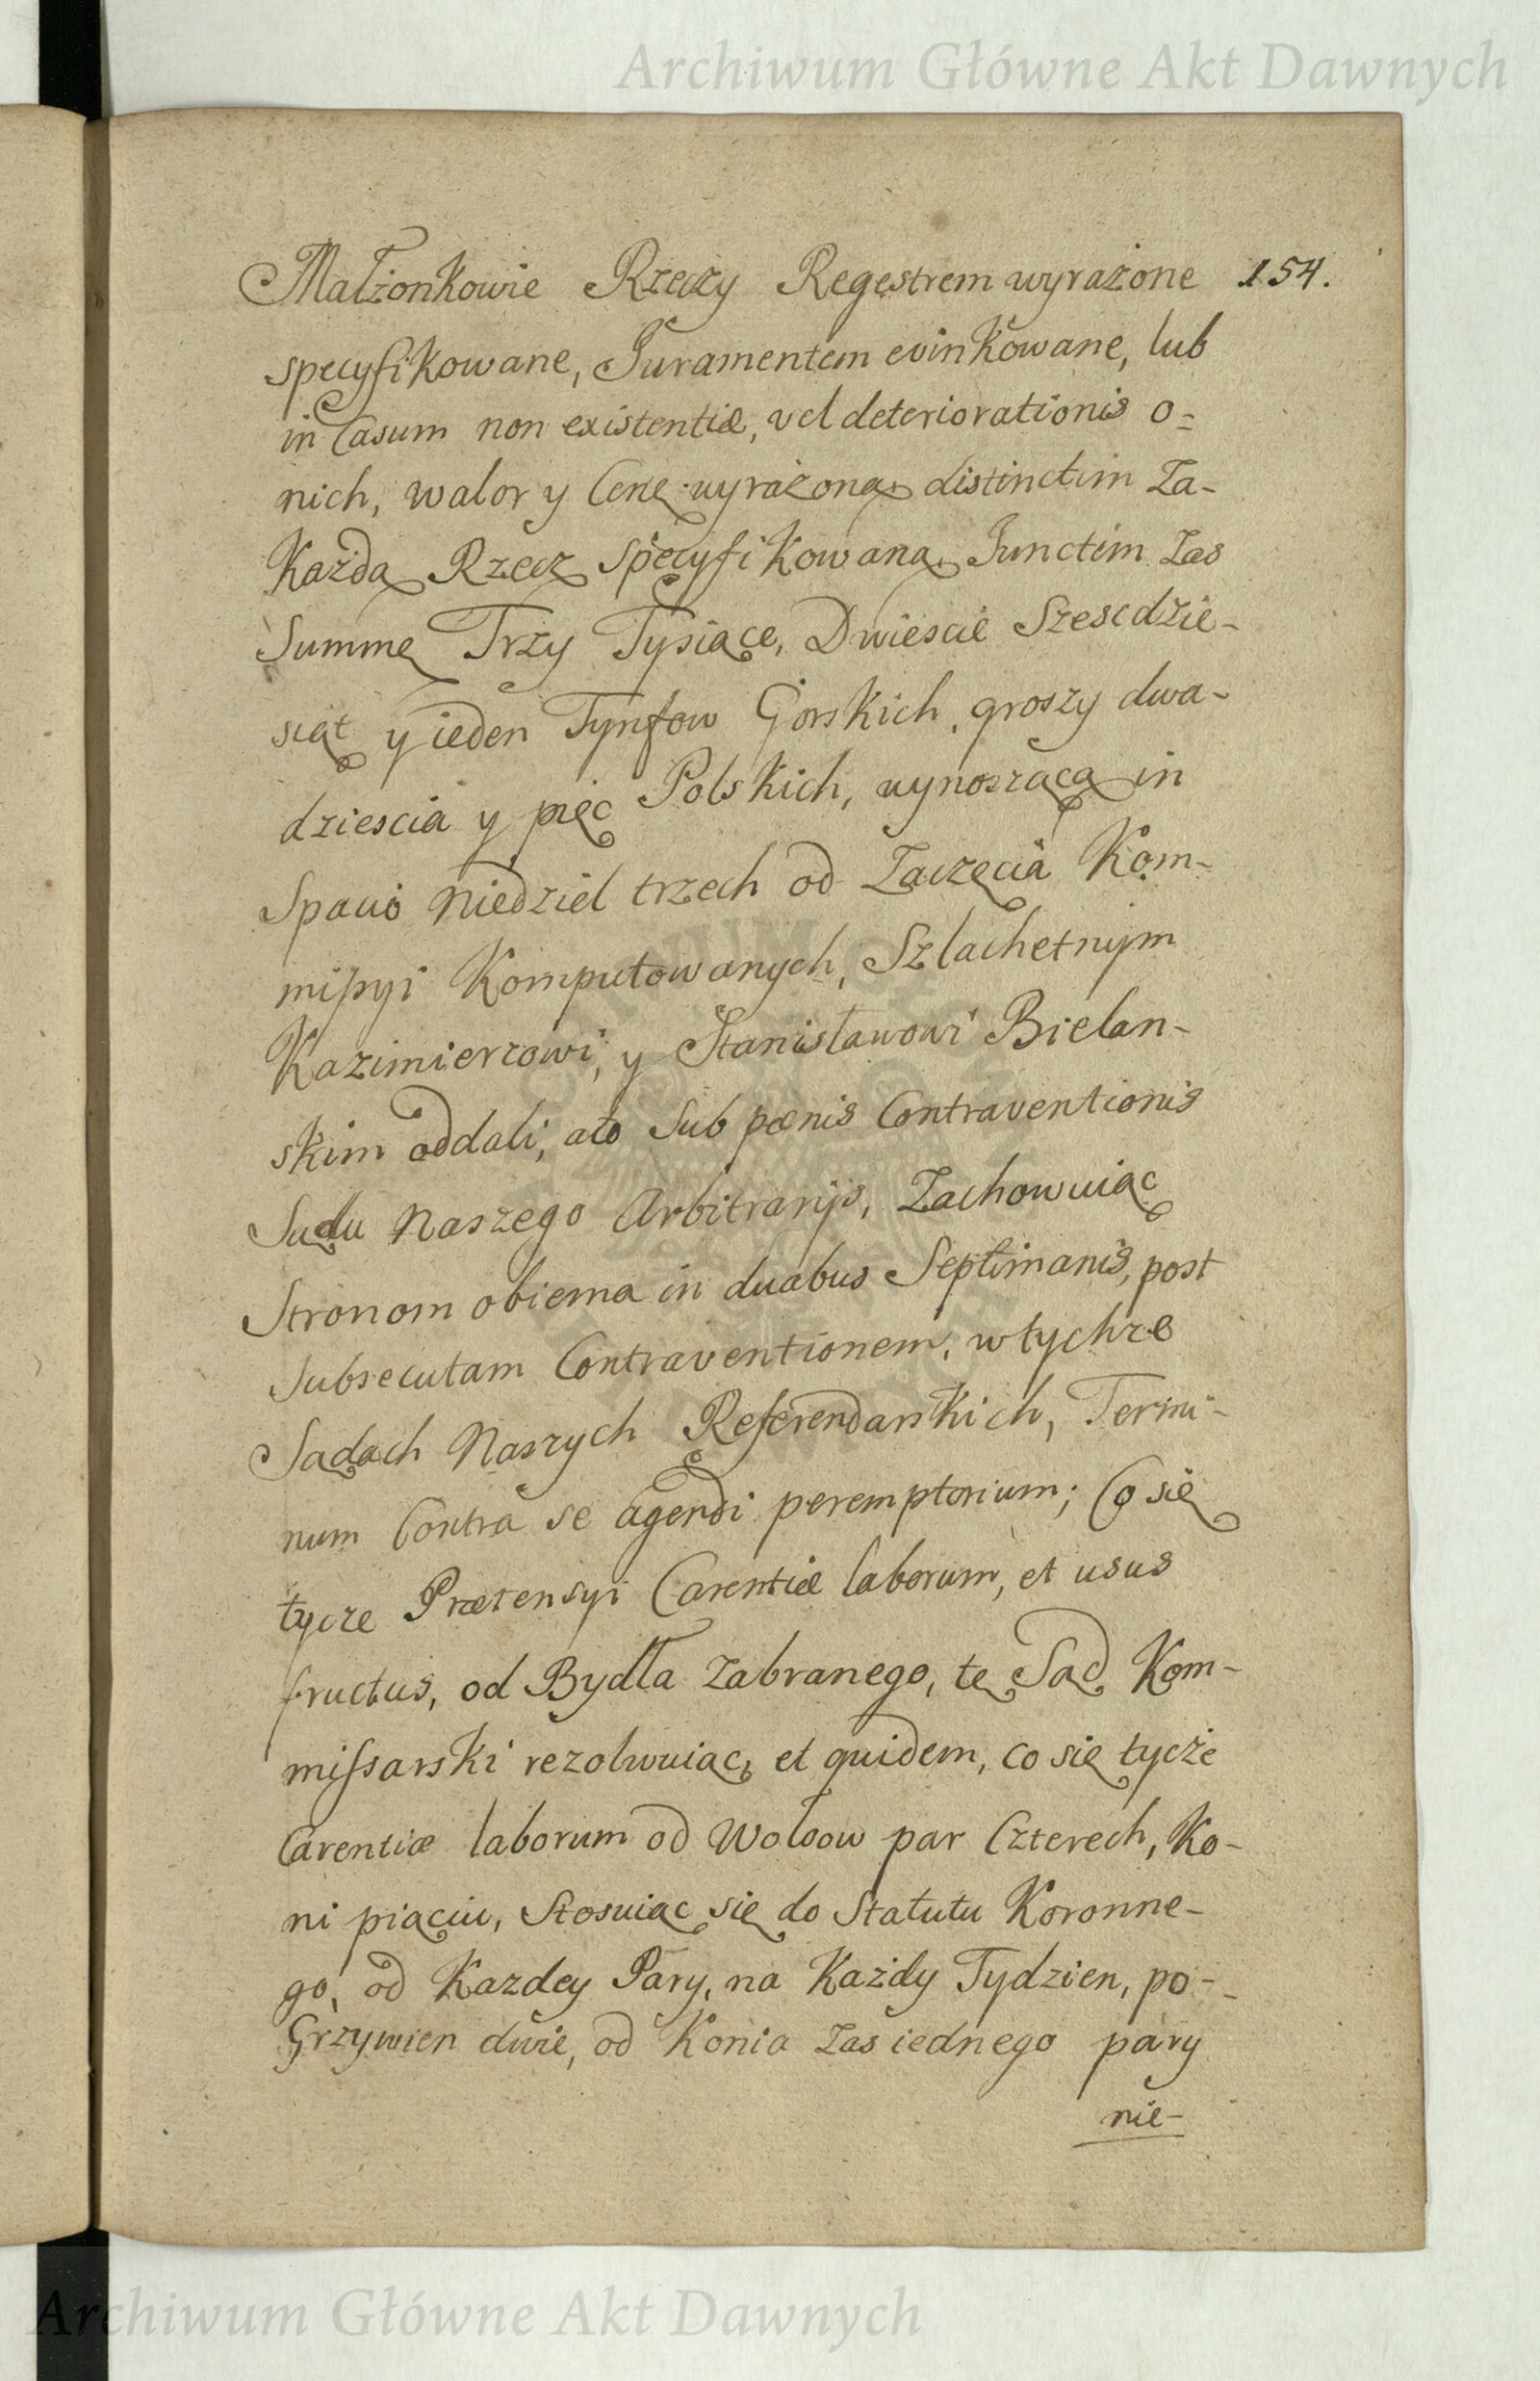 Archiwum Główne Akt Dawnych
Małżonkowie Rzeczy Regestrem wyrażone 154.
specyfikowane, Juramentem evinkowane, lub
in Casum non existentiæ, vel deteriorationis o=
nich, walor y Cenę wyrażoną distinctim Za-
Każdą Rzecz specyfikowaną Junctim Zas
Summę Trzy Tysiące, Dwiescie Szescdzie-
siąt y ieden Tynfow Gorskich, groszy dwa-
dziescia y pięc Polskich, wynoszącą in
Spatio Niedziel trzech od Zaczęcia Kom-
missyi Komputowanych, Szlachetnym
Kazimierzowi, y Stanisławowi Bielan-
skim oddali, a to sub pœnis Contraventionis
Sądu Naszego Arbitrarijs, Zachowuiąc
Stronom obiema in duabus Septimanis, post
Subsecutam Contraventionem, w tychże
Sądach Naszych Referendarskich, Termi-
num Contra se agendi peremptorium; Co się
tycze Prætensyi Carentiæ laborum, et usus
fructus, od Bydła zabranego, tę Sąd Kom-
missarski rezolwuiąc, et quidem, co się tycże
Carentiæ laborum od Wołow par Czterech, Ko-
ni piąciu, Stosuiąc się do Statutu Koronne-
go, od Kazdey Pary, na Każdy Tydzien, po-
Grzywien dwie, od Konia Zas iednego pary
nie-
Archiwum Główne Akt Dawnych